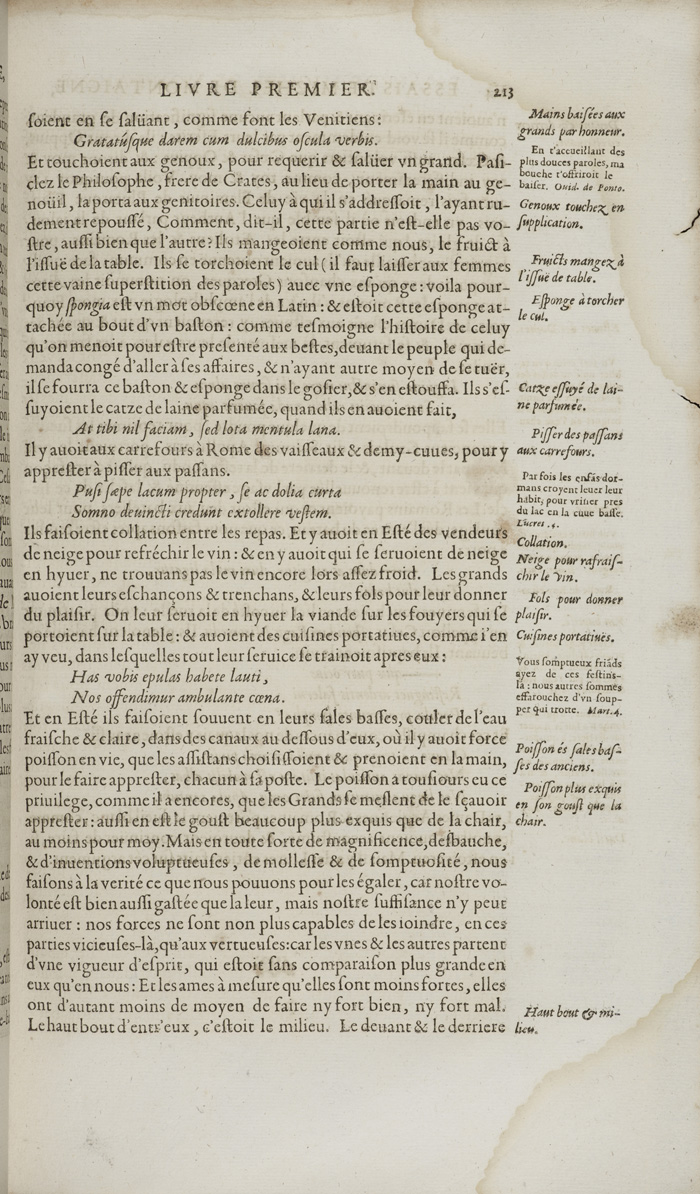 LIVRE PREMIER. 213
ſoient en ſe ſalüant, comme font les Venitiens:
Gratatúſque darem cum dulcibus oſcula verbis.
Et touchoient aux genoux, pour requerir & ſalüer vn grand. Paſi-
clez le Philoſophe, frere de Crates, au lieu de porter la main au ge-
noüil, la porta aux genitoires. Celuy à qui il s'addreſſoit, l'ayant ru-
dement repouſſé, Comment, dit-il, cette partie n'eſt-elle pas vo-
ſtre, auſſi bien que l'autre? Ils mangeoient comme nous, le fruict à
l'iſſuë de la table. Ils ſe torchoient le cul (il faut laiſſer aux femmes
cette vaine ſuperſtition des paroles) auec vne eſponge: voila pour-
quoy ſpongia eſt vn mot obſcœne en Latin: & eſtoit cette eſponge at-
tachée au bout d'vn baſton: comme teſmoigne l'hiſtoire de celuy
qu'on menoit pour eſtre preſenté aux beſtes, deuant le peuple qui de-
manda congé d'aller à ſes affaires, & n'ayant autre moyen de ſe tuër,
il ſe fourra ce baſton & eſponge dans le goſier, & s'en eſtouffa. Ils s'eſ-
ſuyoient le catze de laine parfumée, quand ils en auoient fait,
At tibi nil faciam, ſed lota mentula lana.
Il y auoit aux carrefours à Rome des vaiſſeaux & demy-cuues, pour y
appreſter à piſſer aux paſſans.
Puſi ſæpe lacum propter, ſe ac dolia curta
Somno deuincti credunt extollere veſtem.
Ils faiſoient collation entre les repas. Et y auoit en Eſté des vendeurs
de neige pour refréchir le vin: & en y auoit qui ſe ſeruoient de neige
en hyuer, ne trouuans pas le vin encore lors aſſez froid. Les grands
auoient leurs eſchançons & trenchans, & leurs fols pour leur donner
du plaiſir. On leur ſeruoit en hyuer la viande ſur les fouyers qui ſe
portoient ſur la table: & auoient des cuiſines portatiues, comme i'en
ay veu, dans leſquelles tout leur ſeruice ſe trainoit apres eux:
Has vobis epulas habete lauti,
Nos offendimur ambulante cœna.
Et en Eſté ils faiſoient ſouuent en leurs ſales baſſes, couler de l'eau
fraiſche & claire, dans des canaux au deſſous d'eux, où il y auoit force
poiſſon en vie, que les aſſiſtans choiſiſſoient & prenoient en la main,
pour le faire appreſter, chacun à ſa poſte. Le poiſſon a touſiours eu ce
priuilege, comme il a encores, que les Grands ſe meſlent de le ſçauoir
appreſter: auſſi en eſt le gouſt beaucoup plus exquis que de la chair,
au moins pour moy. Mais en toute ſorte de magnificence, deſbauche,
& d'inuentions voluptueuſes, de molleſſe & de ſomptuoſité, nous
faiſons à la verité ce que nous pouuons pour les égaler, car noſtre vo-
lonté eſt bien auſſi gaſtée que la leur, mais noſtre ſuffiſance n'y peut
arriuer: nos forces ne ſont non plus capables de les ioindre, en ces
parties vicieuſes-là, qu'aux vertueuſes: car les vnes & les autres partent
d'vne vigueur d'eſprit, qui eſtoit ſans comparaiſon plus grande en
eux qu'en nous: Et les ames à meſure qu'elles ſont moins fortes, elles
ont d'autant moins de moyen de faire ny fort bien, ny fort mal.
Le haut bout d'entr'eux, c'eſtoit le milieu. Le deuant & le derriere
Mains baiſées aux
grands par honneur.
En t'accueillant des
plus douces paroles, ma
bouche t'offriroit le
baiſer. Ouid. de Ponto.
Genoux touchez en
ſupplication.
Fruicts mangez à
l'iſſuë de table.
Eſponge à torcher
le cul.
Catze eſſuyé de lai-
ne parfumée.
Piſſer des paſſans
aux carrefours.
Par fois les enfãs dor-
mans croyent leuer leur
habit, pour vriner pres
du lac en la cuue baſſe.
Lucret. 4.
Collation.
Neige pour rafraiſ-
chir le vin.
Fols pour donner
plaiſir.
Cuiſines portatiues.
Vous ſomptueux friãds
ayez de ces feſtins-
là: nous autres ſommes
effarouchez d'vn ſoup-
per qui trotte. Mart. 4.
Poiſſon és ſales baſ-
ſes des anciens.
Poiſſon plus exquis
en ſon gouſt que la
chair.
Haut bout & mi-
lieu.